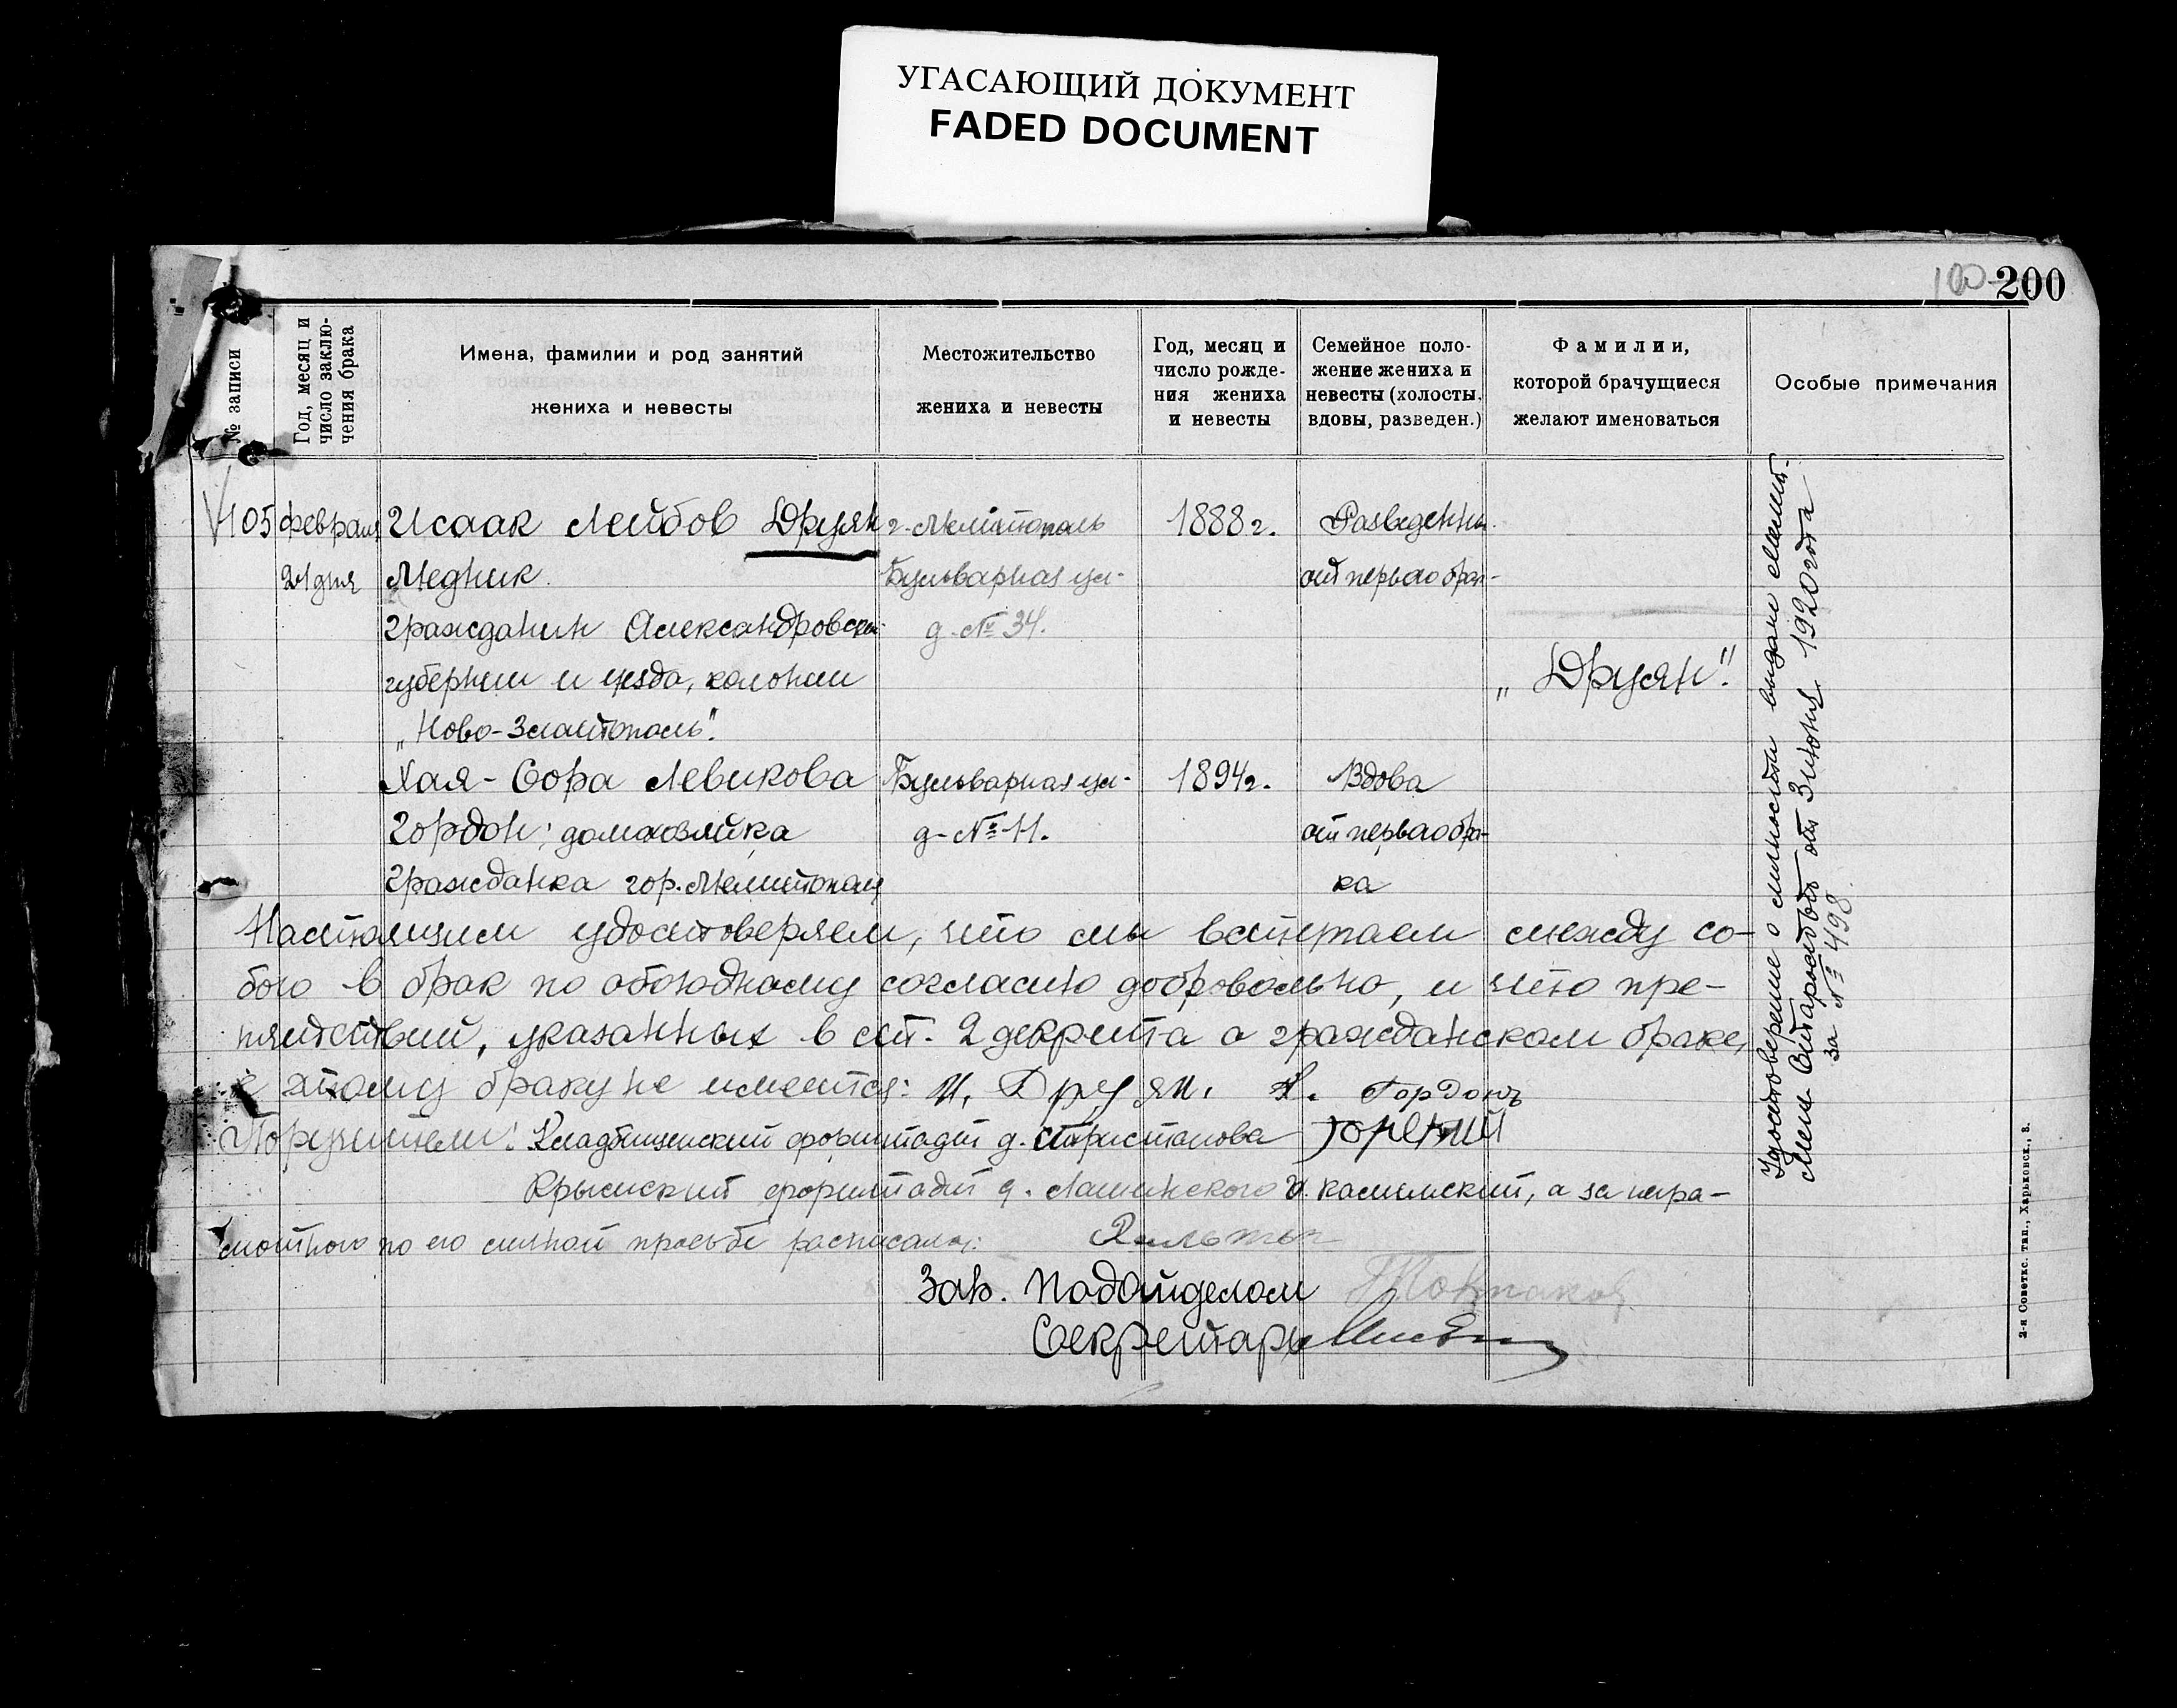 УГАСАЮЩИЙ ДОКУМЕНТ
FADED DOCUMENT
100 200
№ записи
Год, месяц и
число заклю-
чения брака
Имена, фамилии и род занятий
жениха и невесты
Местожительство
жениха и невесты
Год, месяц и
число рожде-
ния жениха
и невесты
Семейное поло-
жение жениха и
невесты (холосты,
вдовы, разведен.)
Фамилии,
которой брачущиеся
желают именоваться
Особые примечания
105 февраля Исаак Лейбов Друян г. Мелитополь 1888 г. Разведенн.
24 дня Медник Бульварная ул. от первого бра-
гражданин Александровской д. № 34.
губернии и уезда, колонии „Друян".
„Ново-Златополь".
Хая-Сора Левикова Бульварная ул. 1894 г. Вдова
Гордон; домохозяйка д. № 11. от первого бра-
гражданка гор. Мелитополя ка
Настоящим удостоверяем, что мы вступаем между со-
бою в брак по обоюдному согласию добровольно, и что пре-
пятствий, указанных в ст. 2 декрета о гражданском браке,
к этому браку не имеется: И. Друян. Х. Гордонъ
Поручители: Кладбищенский форштадт д.
Крымский форштадт д. а за негра-
мотного по его личной просьбе расписался:
Зав. Подотделом
Секретарь
Удостоверение о личности выдан Мелит.
от 3 июня 1920 года
за № 498.
2-я Советск. тип., Харьковск., 8.